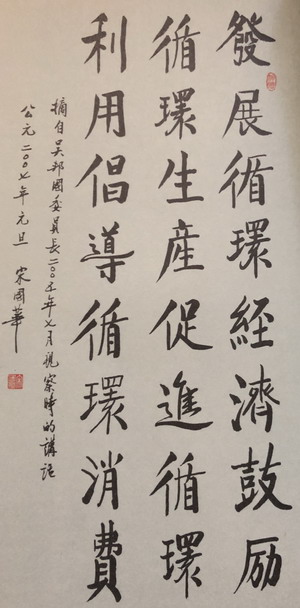 發展循環經濟鼓励
循環生産促進循環
利用倡導循環消費
摘自吴邦國委員長二〇〇五年七月視察時的講話
公元二〇〇七年元旦 宋國華